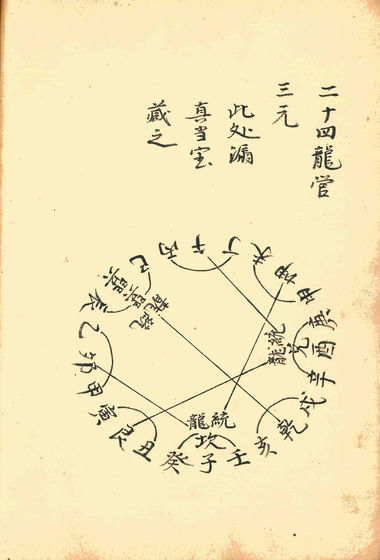 二十四龍管
三元
此处漏
真当宝
藏之
午
丁
未
坤
申
庚
酉
辛
戌
乾
亥
壬
子
癸
丑
艮
寅
甲
卯
乙
辰
巽
巳
丙
龍統
兌
龍統
坎
龍統